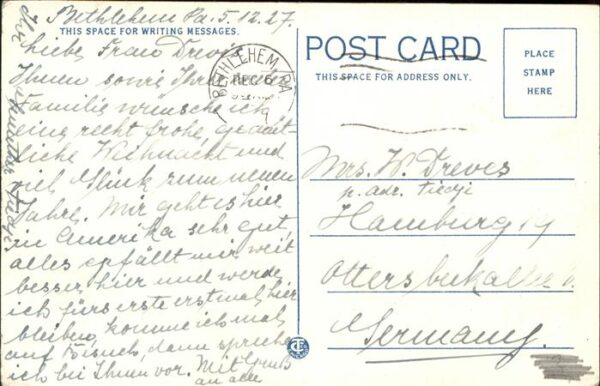 Bethlehem Pa. 5.12.27.
THIS SPACE FOR WRITING MESSAGES.
Liebe Frau Dreves
Ihnen sowie Ihrer lieben
Familie wünsche ich
eine recht frohe, gemüt-
liche Weihnacht und
viel Glück zum neuen
Jahre. Mir geht es hier
in Amerika sehr gut,
alles gefällt mir weit
besser hier und werde
ich fürs erste erstmal hier
bleiben, komme ich mal
auf Besuch, dann spreche
ich bei Ihnen vor. Mit Gruß
an alle
Ihr
BETHLEHEM, PA.
DEC 6
POST CARD
THIS SPACE FOR ADDRESS ONLY.
PLACE
STAMP
HERE
Mrs. W. Dreves
p. adr. Tiedje
Hamburg 19
Germany.